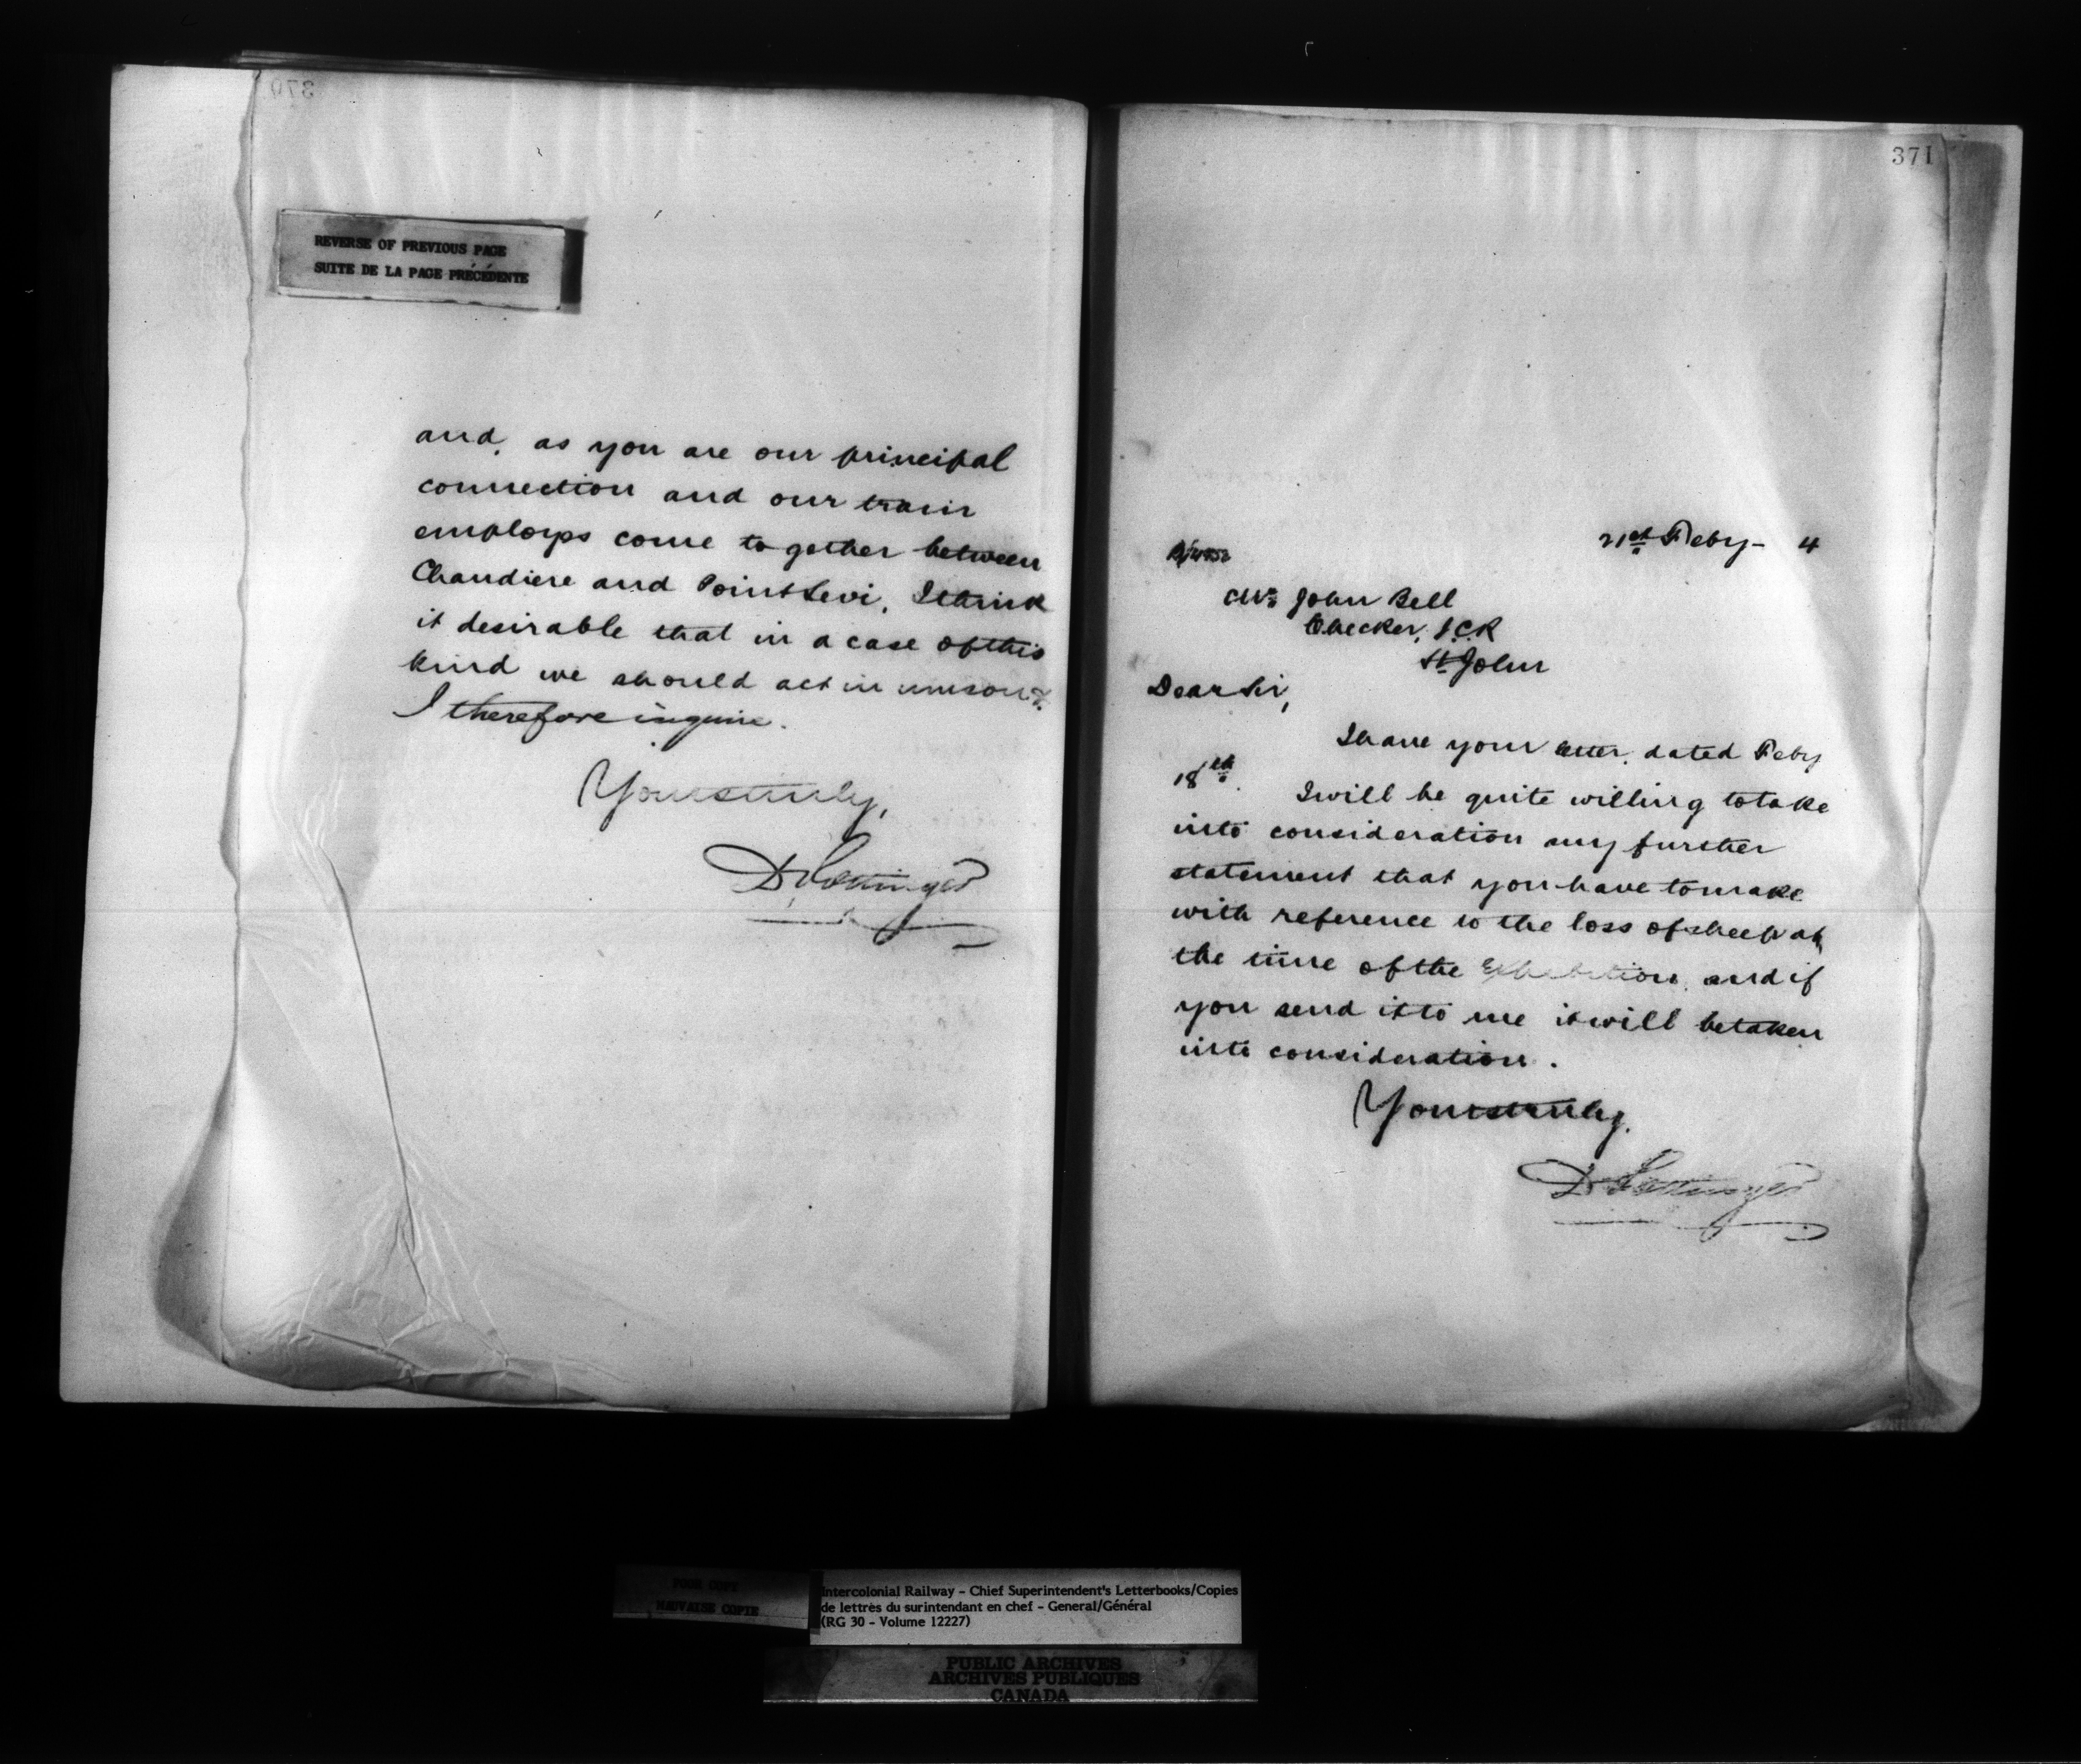 370
REVERSE OF PREVIOUS PAGE
SUITE DE LA PAGE PRÉCÉDENTE
and, as you are our principal
connection and our train
employes come together between
Chaudiere and Point Levi, I think
it desirable that in a case of this
kind we should act in unison &
I therefore inquire.
Yours truly,
D Pottinger
371
21st Feby - 4
Mr John Bell
Checker, I.C.R
St John
Dear Sir,
I have your letter, dated Feby
18th. I will be quite willing to take
into consideration any further
statement that you have to make
with reference to the loss of sheep at
the time of the Exhibition, and if
you send it to me it will be taken
into consideration.
Yours truly,
D Pottinger
POOR COPY
MAUVAISE COPIE
Intercolonial Railway - Chief Superintendent's Letterbooks/Copies
de lettres du surintendant en chef - General/Général
(RG 30 - Volume 12227)
PUBLIC ARCHIVES
ARCHIVES PUBLIQUES
CANADA